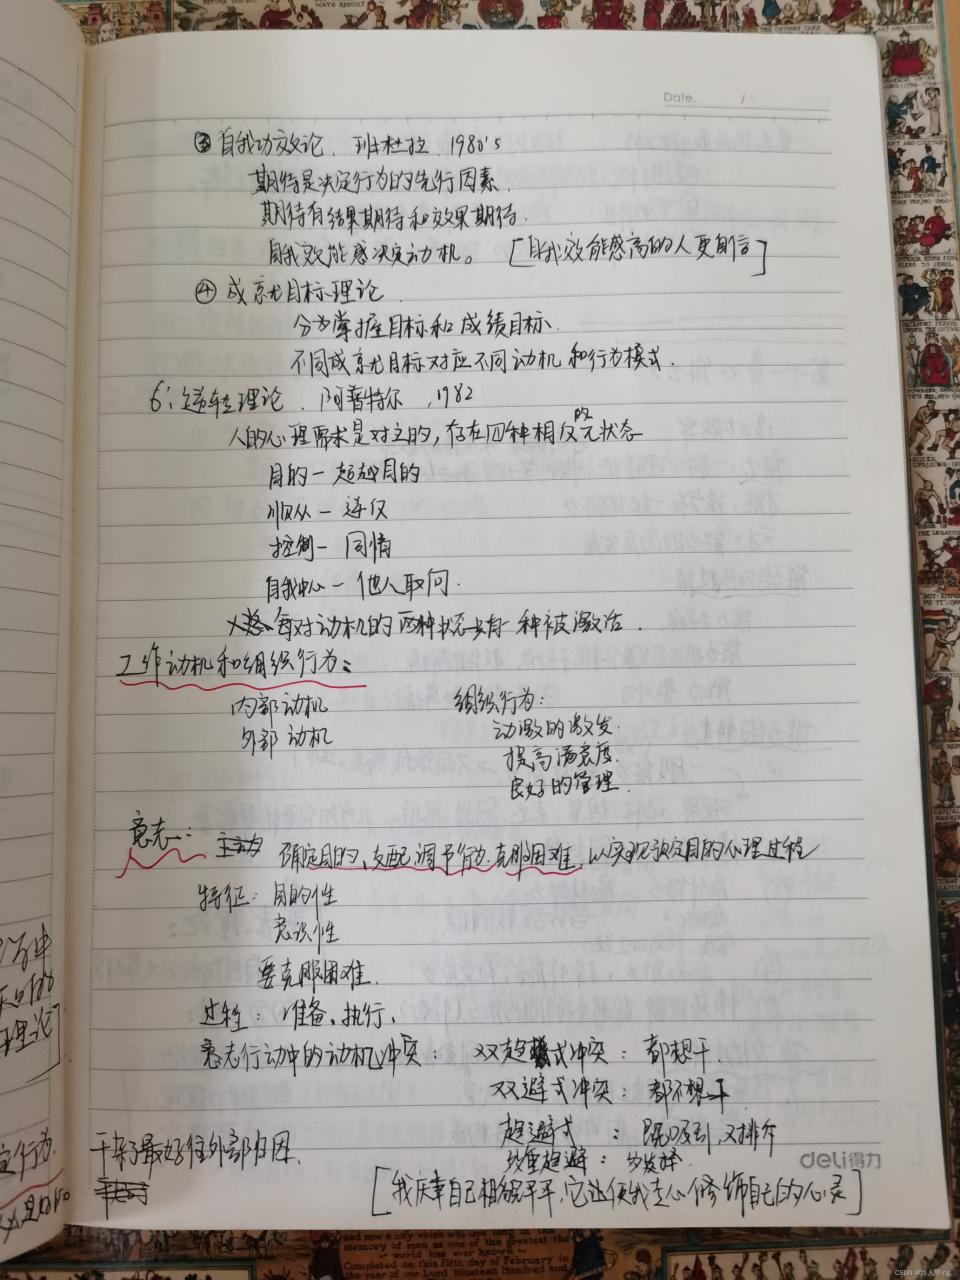 Date. /
③ 自我功效论、班杜拉、1980's
期待是决定行为的先行因素.
期待有结果期待和效果期待.
自我效能感决定动机。 [自我效能感高的人更自信]
④ 成就目标理论
分为掌握目标和成绩目标.
不同成就目标对应不同动机和行为模式.
6: 逆转理论、阿普特尔,1982
人的心理需求是对立的,存在四种相反的元状态
目的一超越目的
顺从一逆反
控制一同情
自我中心一他人取向.
每对动机的两种状态只有一种被激活.
工作动机和组织行为:
内部动机 组织行为:
外部动机 动激的激发.
提高满意度.
良好的管理.
意志: 主动 确定目的、支配调节行动.克服困难,以实现预定目的心理过程
特征: 目的性
意识性
要克服困难.
过程: 准备、执行.
意志行动中的动机冲突: 双趋式冲突: 都想干.
双避式冲突: 都不想干.
趋避式 : 既吸引,又排斥
多重趋避: 多选择.
干杂了最好往外部归因.
deli得力
[我庆幸自己相貌平平,它让使我走心修饰自己的心灵]
CSDN @路人甲ing..